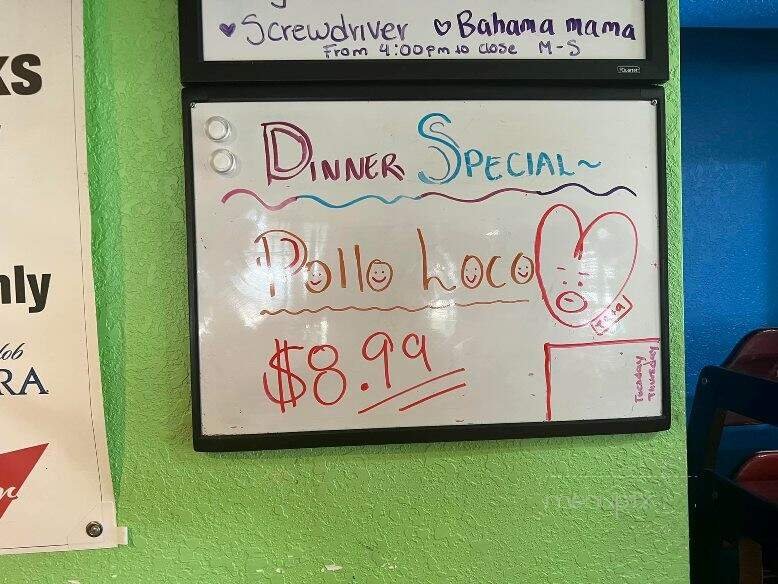 Screwdriver Bahama mama
From 4:00pm to close M-S
Quartet
DINNER SPECIAL~
Pollo Loco
$8.99
Tuesday
Thursday
ks
nly
lob
RA
menupix